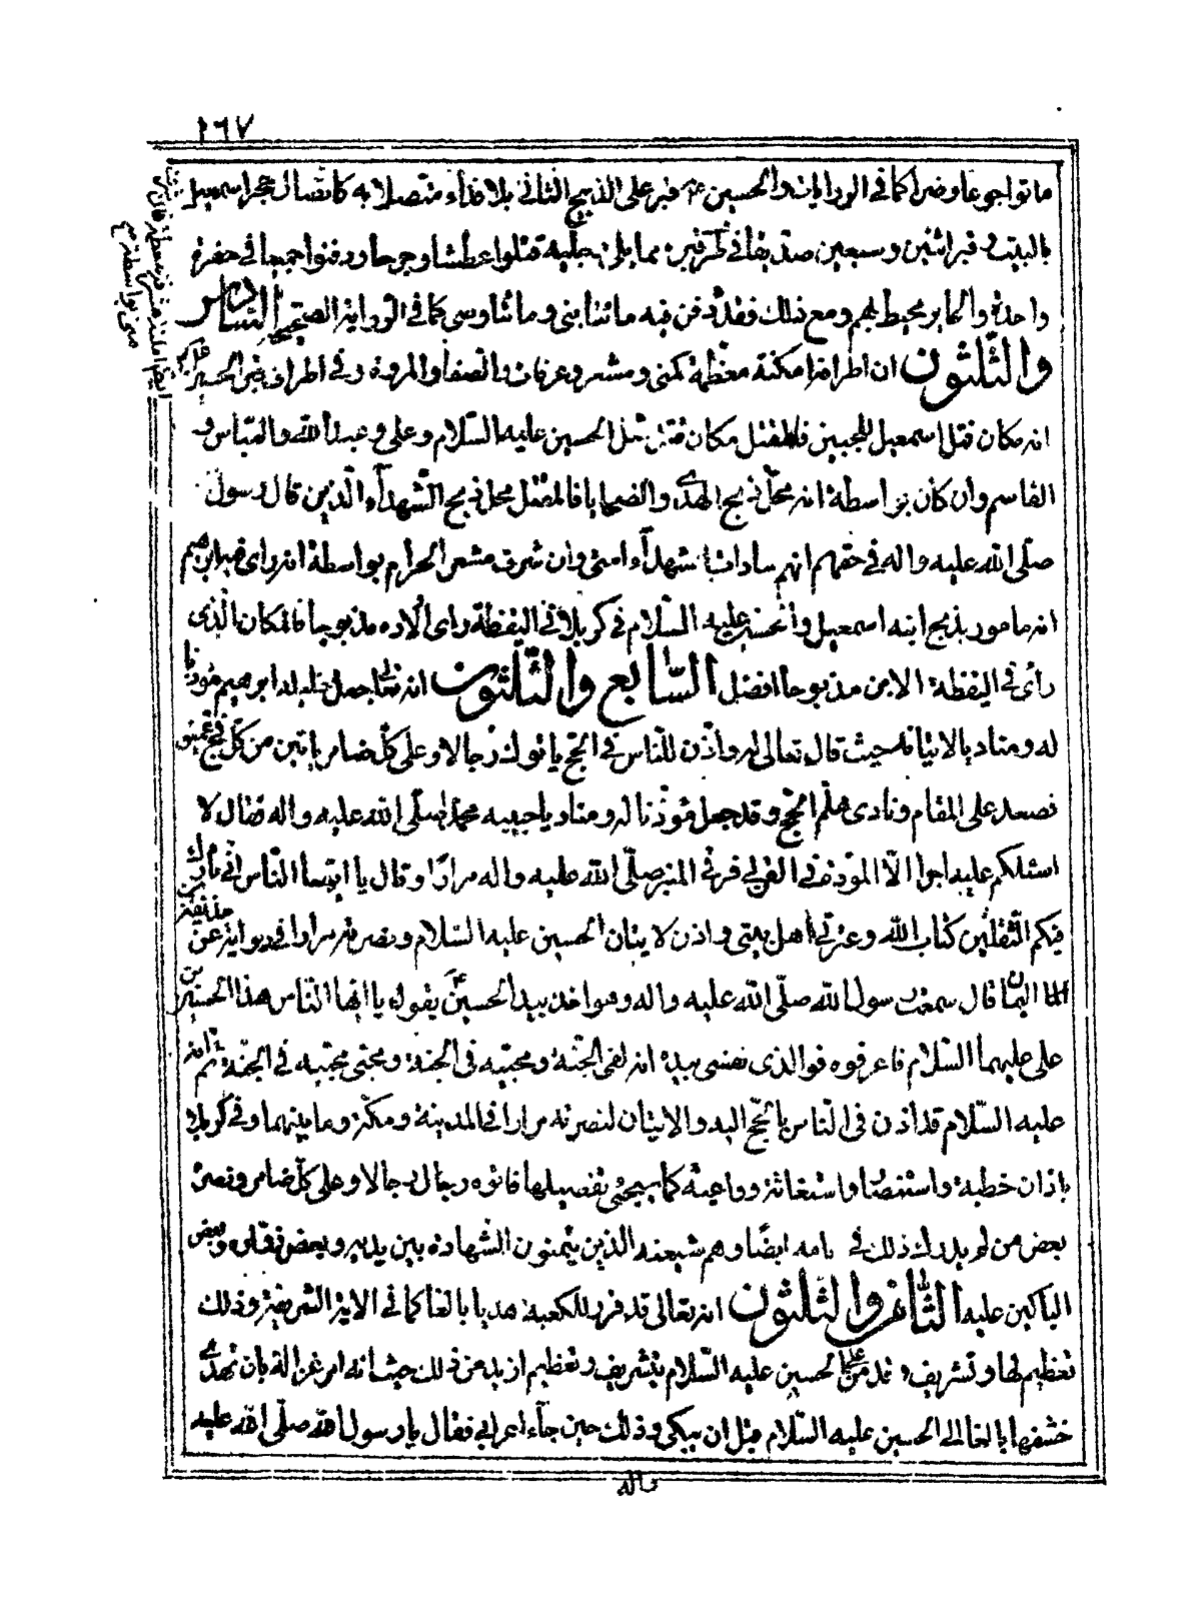 ١٦٧
ماتوا جوعا وضرا كما في الروايات والحسين ع قبر على الذبيح الثاني بلا فداء متصلا به كاتصال حجر اسمعيل
بالبيت و قبر اثنين وسبعين صديقا في مما يلي رجليه قتلوا عطشا وجوعا ودفنوا جميعا في حفرة
واحدة والحاير محيط بهم ومع ذلك فقد دفن فيه مائتا نبي ومائتا وصي كما في الرواية الصحيحة السادس
والثلثون ان اطراف مكة معظمة كمنى ومشعر وعرفات والصفا والمروة وفي اطراف قبر الحسين
انه مكان قتل اسمعيل للجبين فالمقتل مكان قتل مثل الحسين عليه السلام وعلي وعبد الله والعباس و
القاسم وان كان بواسطة انه محل ذبح الهدي والضحايا فالمقتل محل ذبح الشهداء الذين قال رسول
صلى الله عليه واله في حقهم انهم سادات شهداء امتي وان شرف مشعر الحرام بواسطة انه راى فيه ابرهيم
انه مامور بذبح ابنه اسمعيل وان عليه السلام في كربلا في اليقظة راى اولاده مذبوحا فالمكان الذي
راى في اليقظة الابن مذبوحا افضل السابع والثلثون انه تعالى جعل خليله ابرهيم مؤذنا
له ومناد بالاتيان حيث قال تعالى له واذن للناس في الحج ياتوك رجالا وعلى كل ضامر ياتين من كل فج عميق
فصعد على المقام ونادى هلم الحج وقد جعل مؤذنا له ومناد يا حبيبه محمدا صلى الله عليه واله فقال لا
اسئلكم عليه اجرا الا المودة في القربى فرقي المنبر صلى الله عليه واله مرارا وقال يا ايها الناس اني تارك
فيكم الثقلين كتاب الله وعترتي اهل بيتي واذن لاتيان الحسين عليه السلام ونصرته مرارا في رواية عن حذيفة
بن اليمان قال سمعت رسول الله صلى الله عليه واله وهو اخذ بيد الحسين ع يقول يا ايها الناس هذا الحسين بن
علي عليهما السلام فاعرفوه فوالذي نفسي بيده انه لفي الجنة ومحبيه في الجنة ومحبي محبيه في الجنة ثم انه
عليه السلام قد اذن في الناس بالحج اليه والاتيان لنصرته مرارا في المدينة ومكة وما بينهما وفي كربلا
باذان خطبة واستنصار واستغاثة وواعية كما سيجئ تفصيلها فاتوه رجال رجالا وعلى كل ضامر ونصره
بعض من لم يدرك ذلك في ايامه ايضا وهم شيعته الذين يتمنون الشهادة بين يديه وبعض زواره وبعض
الباكين عليه الثامن والثلثون انه تعالى قد قرر للكعبة هديا بالغا كما في الاية الشريفة وذلك
تعظيم لها وتشريف و قد من الحسين عليه السلام بتشريف وتعظيم ازيد من ذلك حيث انه امر غزالة بان تهدى
خشفها بالغا الى الحسين عليه السلام قبل ان يبكي وذلك حين جاء اعرابي فقال يا رسول الله صلى الله عليه
واله